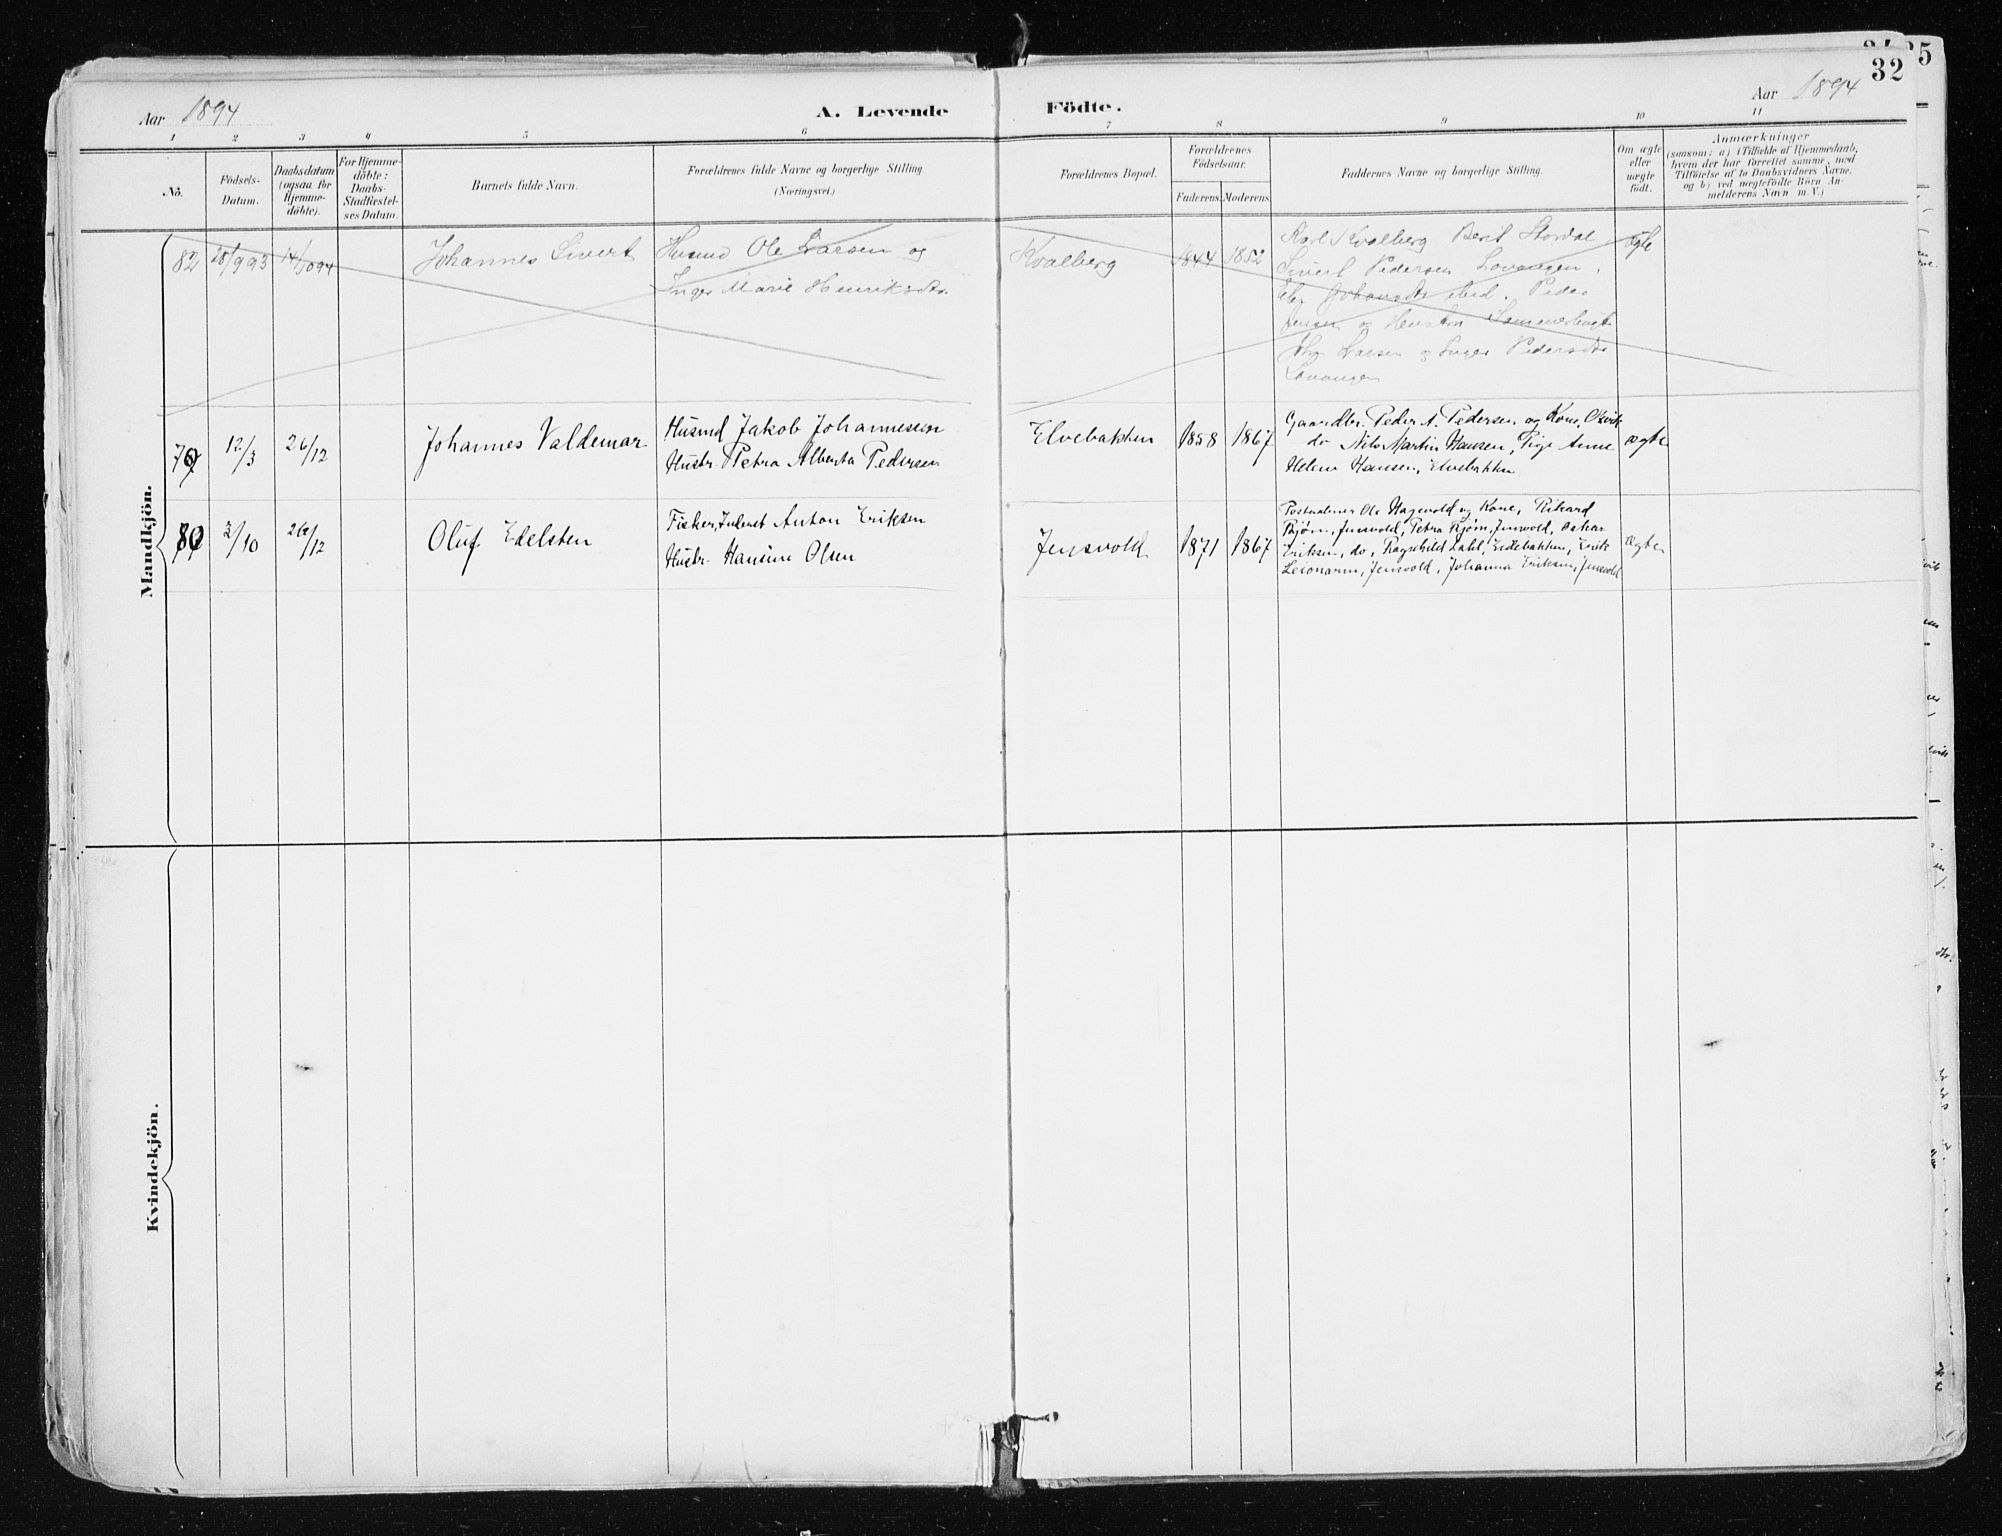 35
32
Aar 1894
A. Levende Födte.
Aar 1894
1 2 3 4 5 6 7 8 9 10 11
No.
Födsels-
Datum.
Daabsdatum
(ogsaa for
Hjemme-
döbte).
For Hjemme-
döbte:
Daabs-
Stadfæstel-
ses Datum.
Barnets fulde Navn.
Forældrenes fulde Navne og borgerlige Stilling
(Næringsvei.)
Forældrenes Bopæl.
Forældrenes
Födselsaar.
Faderens. Moderens.
Faddernes Navne og borgerlige Stilling.
Om ægte
eller
uægte
födt.
Anmærkninger
(saasom: a) i Tilfælde af Hjemmedaab,
hvem der har forrettet samme, med
Tilföielse af to Daabsvidners Navne,
og b) ved uægtefödte Börn An-
melderens Navn m. V.)
Mandkjön.
82 28/9 93 14/10 94 Johannes Sivert
Husmd Ole Larsen og
Inger Marie Henriksdtr.
Kvalberg 1844 1852
Karl Kvalberg Berit Stordal
Sivert Pedersen Lavangen,
Johansdtr ibid. Peder
Jensen og
Larsen og Inger Pedersdtr
Lavangen
ægte
79 12/3 26/12 Johannes Valdemar
Husmd Jakob Johannesen
Hustr. Petra Alberta Pedersen
Elvebakken 1858 1867
Gaardbr. Peder A. Pedersen og Kone,
do Nils Martin Hansen, Pige Anne
Helene Hansen, Elvebakken
ægte
80 3/10 26/12 Oluf Edelsten
Fisker, Inderst Anton Eriksen
Hustr. Hansine Olsen
Jensvold 1871 1867
Ole Hagevold og Kone, Rikard
Bjørn, Jensvold, Petra Bjørn, Jensvold, Oskar
Eriksen, do, Ragnhild Dahl, Eidebakken, Erik
Leionarm, Jensvold, Johanna Eriksen, Jensvold
ægte
Kvindekjön.